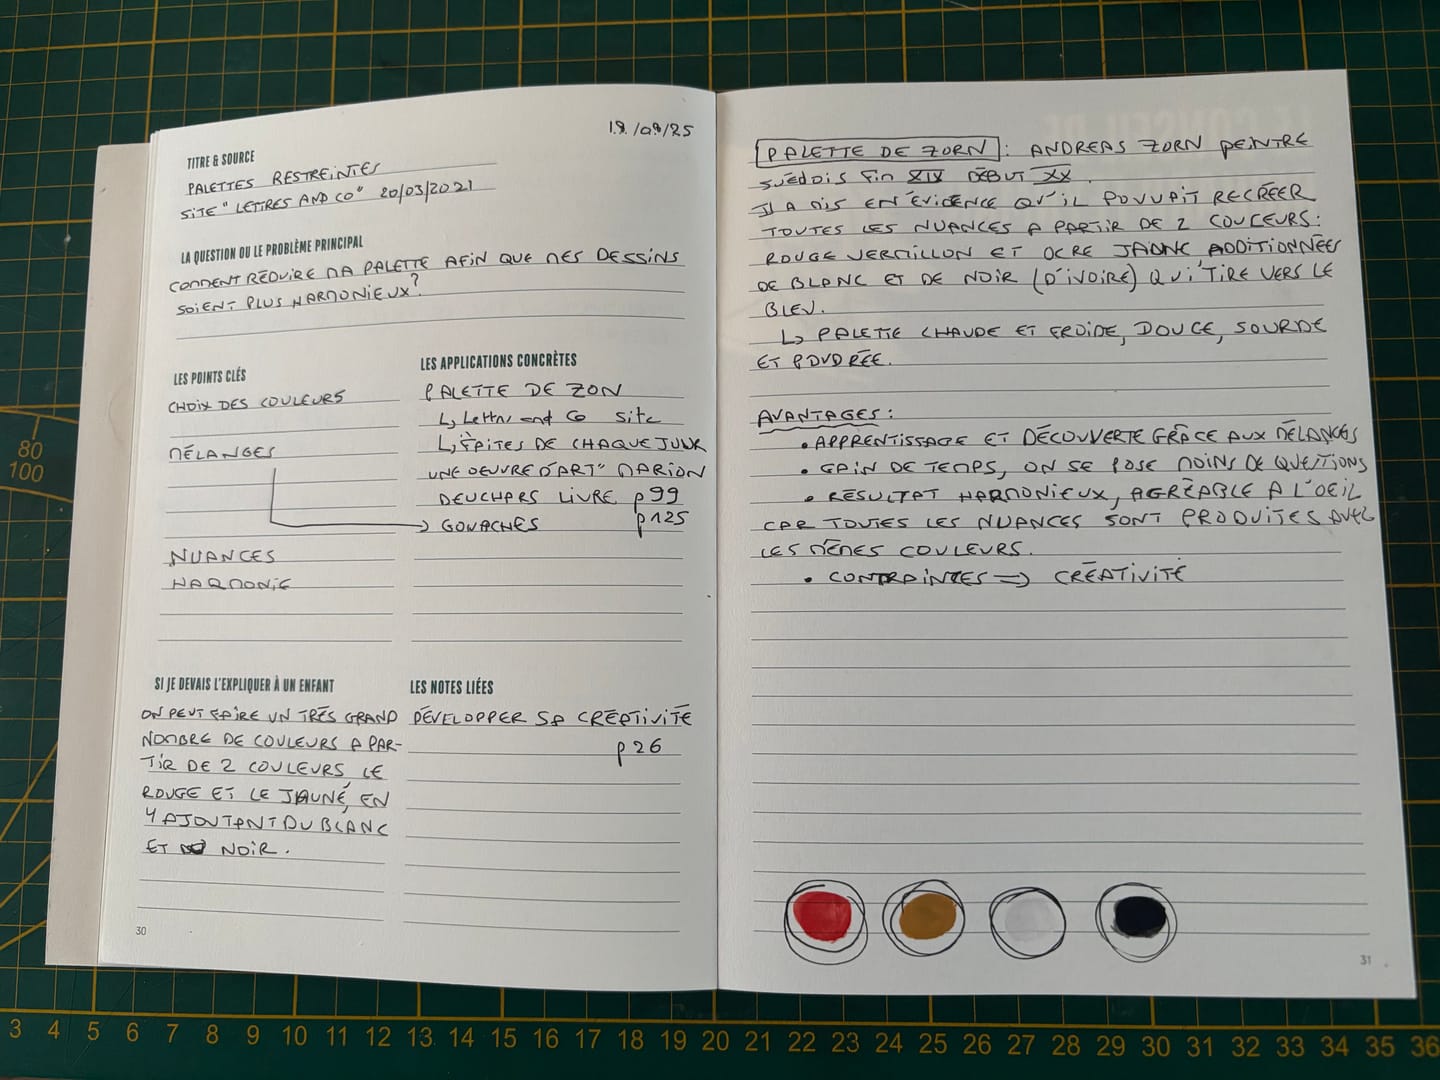 19/09/25
TITRE & SOURCE
PALETTES RESTREINTES
SITE "LETTRES AND CO" 20/03/2021
LA QUESTION OU LE PROBLÈME PRINCIPAL
COMMENT RÉDUIRE MA PALETTE AFIN QUE MES DESSINS
SOIENT PLUS HARMONIEUX?
LES POINTS CLÉS
CHOIX DES COULEURS
MÉLANGES
NUANCES
HARMONIE
LES APPLICATIONS CONCRÈTES
PALETTE DE ZON
↳ Lettres and Co site
↳ "FAITES DE CHAQUE JOUR
UNE OEUVRE D'ART" MARION
DEUCHARS LIVRE p99
→ GOUACHES p125
SI JE DEVAIS L'EXPLIQUER À UN ENFANT
ON PEUT FAIRE UN TRÈS GRAND
NOMBRE DE COULEURS A PAR-
TIR DE 2 COULEURS LE
ROUGE ET LE JAUNE, EN
Y AJOUTANT DU BLANC
ET NOIR.
LES NOTES LIÉES
DÉVELOPPER SA CRÉATIVITÉ
p26
30
PALETTE DE ZORN : ANDREAS ZORN PEINTRE
SUÉDOIS FIN XIV DÉBUT XX.
IL A MIS EN ÉVIDENCE QU'IL POUVAIT RECRÉER
TOUTES LES NUANCES A PARTIR DE 2 COULEURS:
ROUGE VERMILLON ET OCRE JAUNE ADDITIONNÉES
DE BLANC ET DE NOIR (D'IVOIRE) QUI TIRE VERS LE
BLEU.
↳ PALETTE CHAUDE ET FROIDE, DOUCE, SOURDE
ET POUDRÉE.
AVANTAGES:
• APPRENTISSAGE ET DÉCOUVERTE GRÂCE AUX MÉLANGES
• GAIN DE TEMPS, ON SE POSE MOINS DE QUESTIONS
• RÉSULTAT HARMONIEUX, AGRÉABLE A L'OEIL
CAR TOUTES LES NUANCES SONT PRODUITES AVEC
LES MÊMES COULEURS.
• CONTRAINTES => CRÉATIVITÉ
31
80
100
3 4 5 6 7 8 9 10 11 12 13 14 15 16 17 18 19 20 21 22 23 24 25 26 27 28 29 30 31 32 33 34 35 36